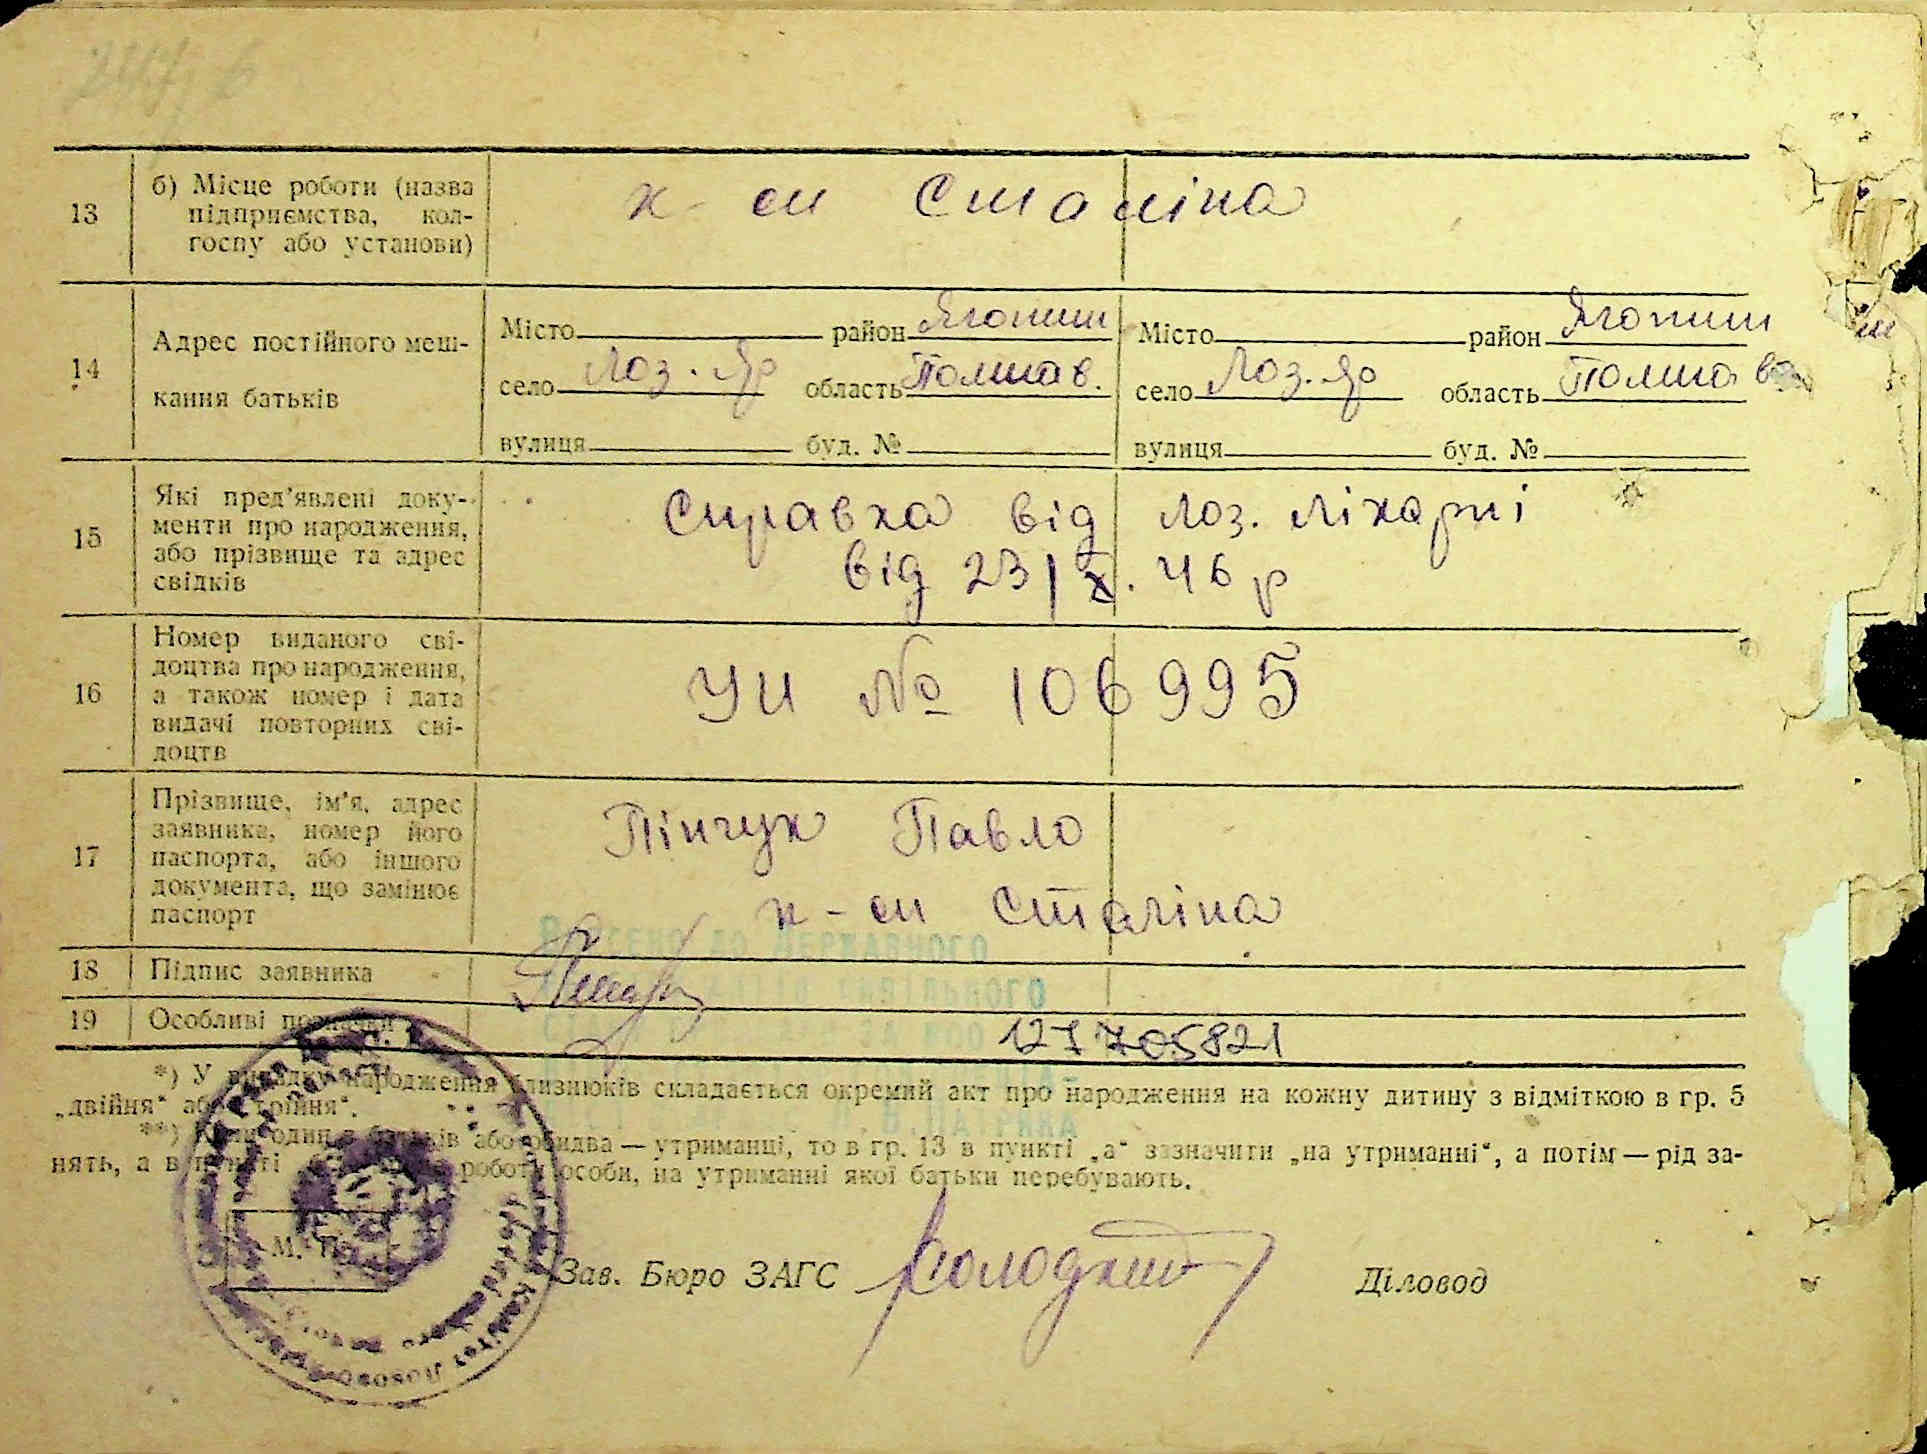 13
б) Місце роботи (назва
підприємства, кол-
госпу або установи)
к - ім Сталіна
14
Адрес постійного меш-
кання батьків
Місто район Яготин
село Лоз. Яр область Полтав.
вулиця буд. №
Місто район Яготин
село Лоз. Яр область Полтав
вулиця буд. №
15
Які пред'явлені доку-
менти про народження,
або прізвище та адрес
свідків
Справка від Лоз. лікарні
від 23/X. 46 р
16
Номер виданого сві-
доцтва про народження,
а також номер і дата
видачі повторних сві-
доцтв
УИ № 106995
17
Прізвище, ім'я, адрес
заявника, номер його
паспорта, або іншого
документа, що замінює
паспорт
Пінчук Павло
к - ім Сталіна
18
Підпис заявника
19
Особливі позначки
127705821
ДО ДЕРЖАВНОГО
*) У випадку народження близнюків складається окремий акт про народження на кожну дитину з відміткою в гр. 5
„двійня“ або „тройня“.
**) Коли один з батьків або обидва — утриманці, то в гр. 13 в пункті „а“ зазначити „на утриманні“, а потім — рід за-
нять, а в пункті роботи особи, на утриманні якої батьки перебувають.
М. П.
Зав. Бюро ЗАГС
Діловод